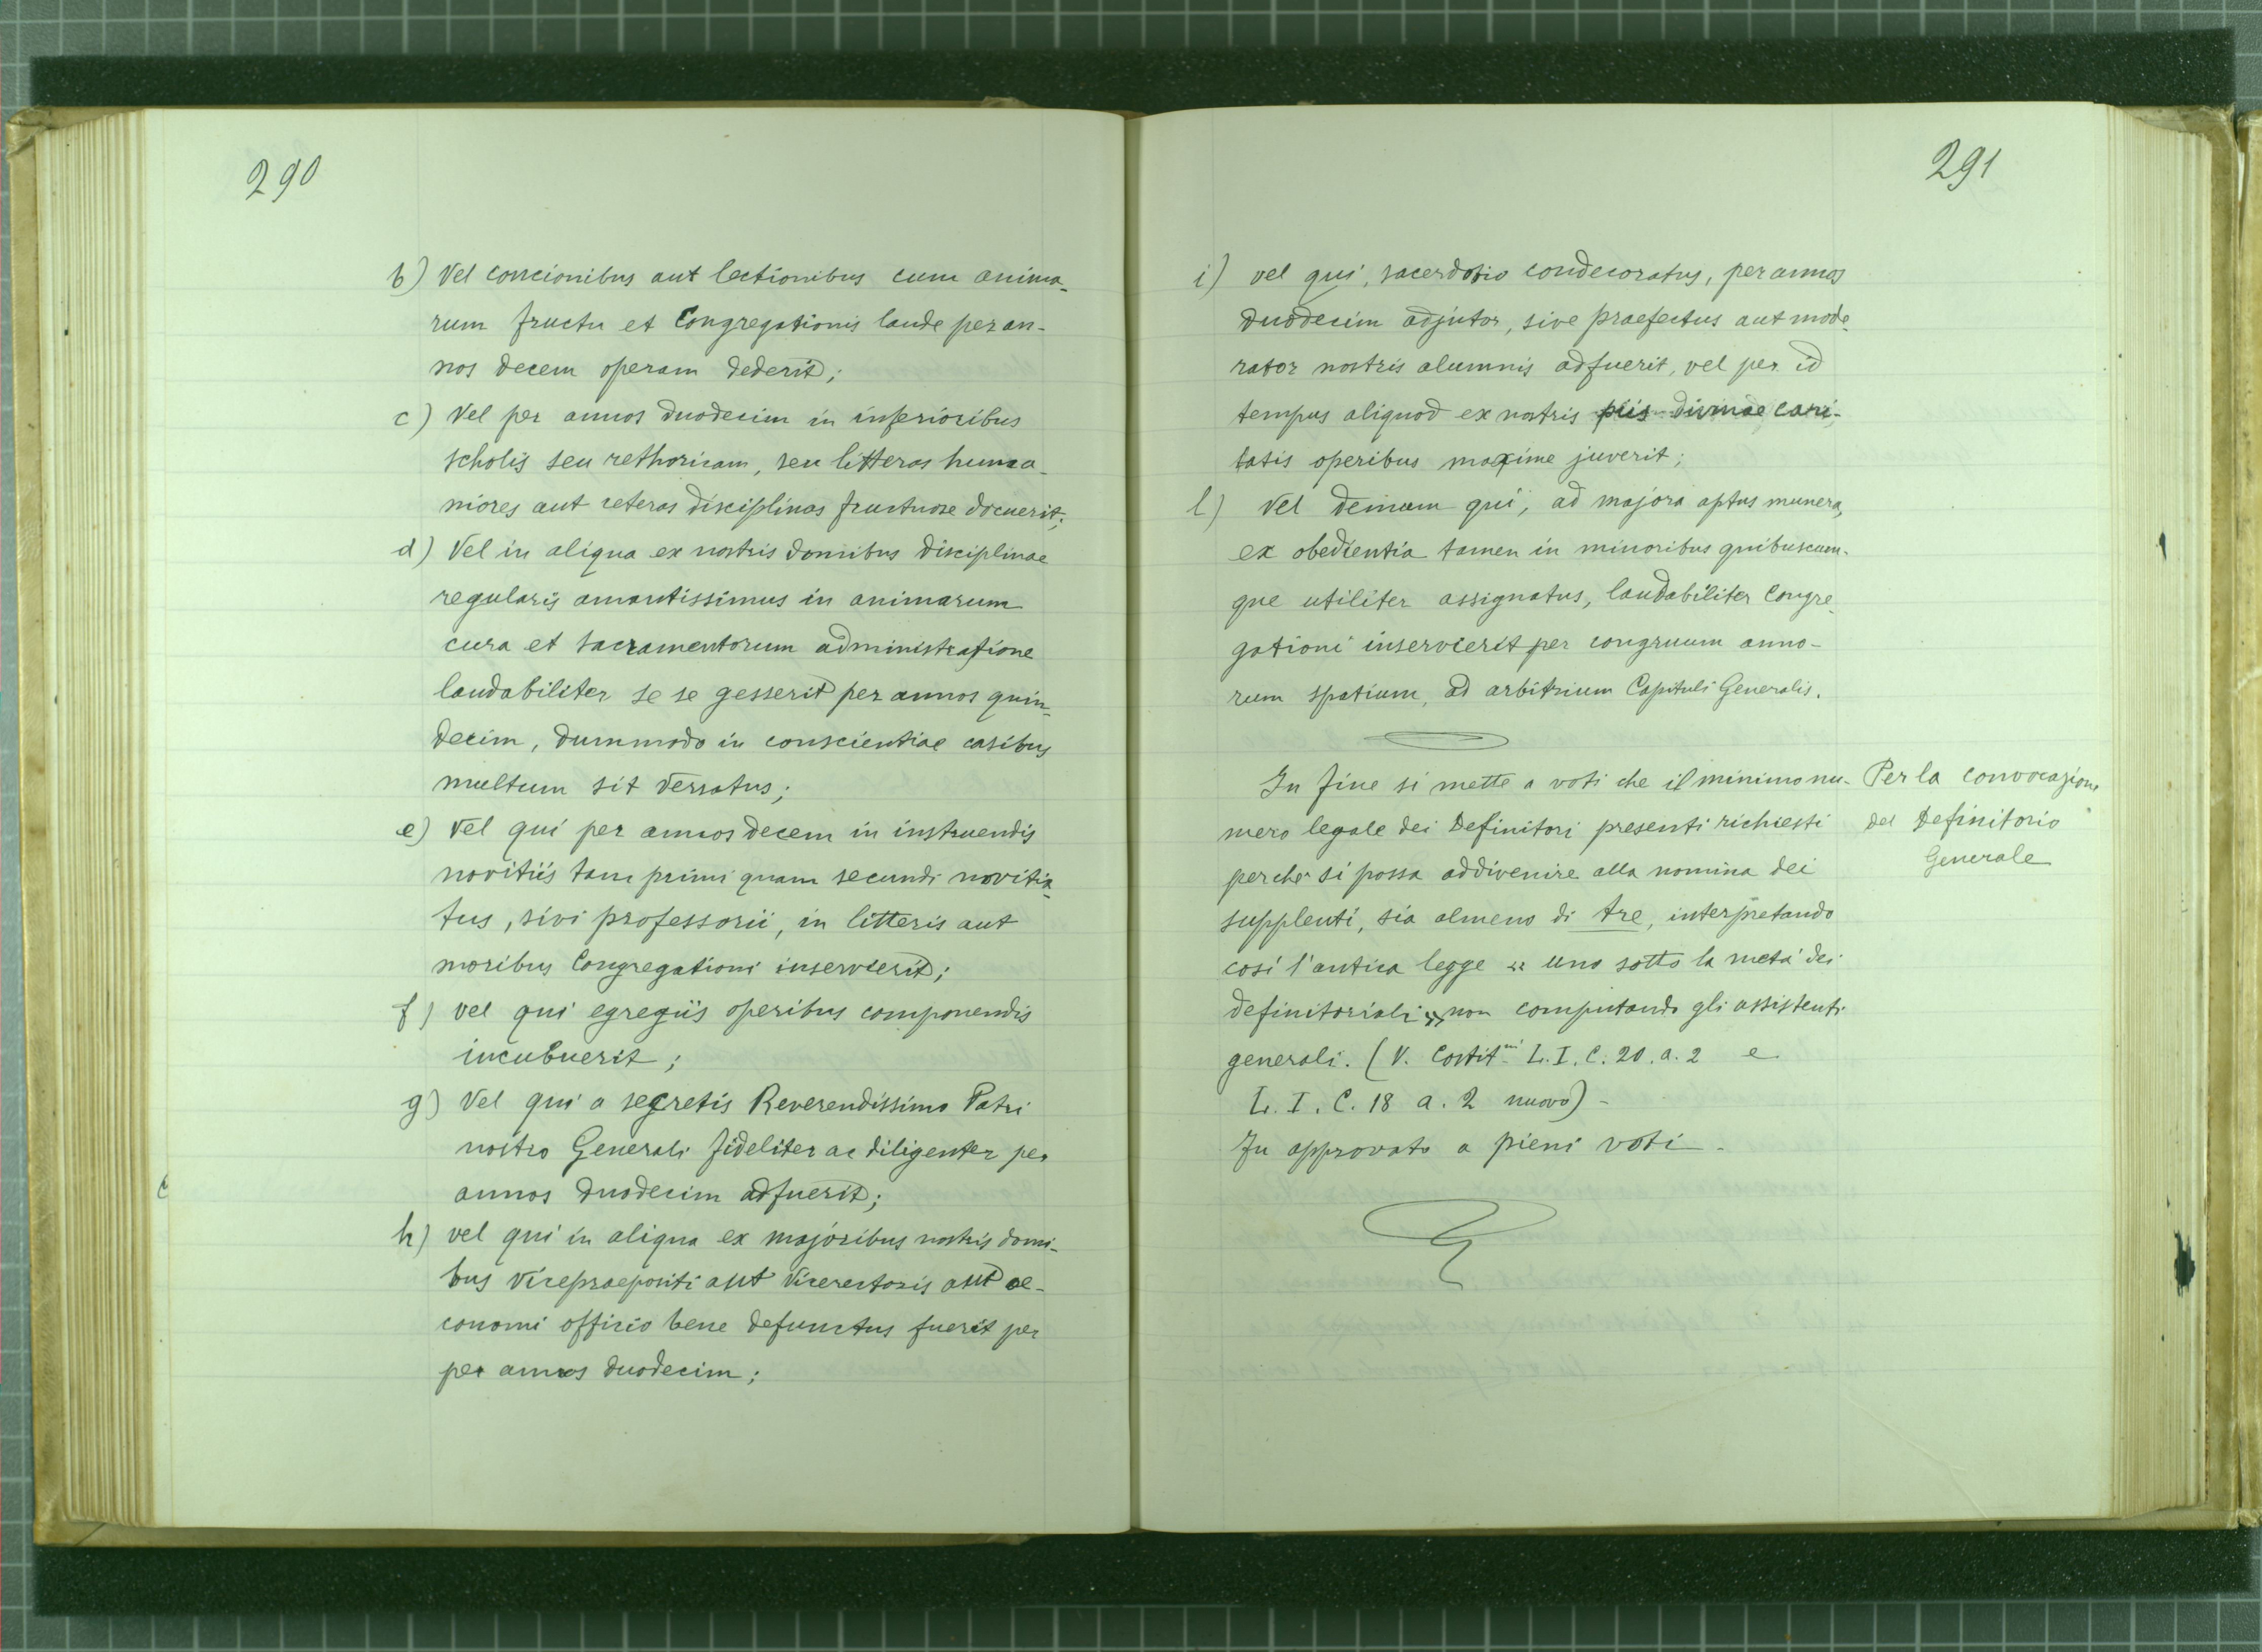 290
b) Vel concionibus aut lectionibus cum anima-
rum fructu et Congregationis laude per an-
nos decem operam dederit;
c) Vel per annos duodecim in inferioribus
scholis seu rethoricam, seu litteras huma-
niores aut ceteras disciplinas fructuose docuerit;
d) Vel in aliqua ex nostris domibus disciplinae
regularis amantissimus in animarum
cura et sacramentorum administratione
laudabiliter se se gesserit per annos quin-
decim, dummodo in conscientiae casibus
multum sit versatus;
e) Vel qui per annos decem in instruendis
novitiis tam primi quam secundi novitia-
tus, sivi professorii, in litteris aut
moribus Congregationi inservierit;
f) vel qui egregiis operibus componendis
incubuerit;
g) Vel qui a segretis Reverendissimo Patri
nostro Generali fideliter ac diligenter per
annos duodecim adfuerit;
h) vel qui in aliqua ex majoribus nostris domi-
bus Vicepraepositi aut Vicerectoris aut oe-
conomi officio bene defunctus fuerit per
per annos duodecim;
291
i) vel qui, sacerdotio condecoratus, per annos
duodecim adjutor, sive praefectus aut mode-
rator nostris alumnis adfuerit, vel per id
tempus aliquod ex nostris piis divinae cari-
tatis operibus maxime juverit;
l) Vel demum qui, ad majora aptus munera,
ex obedientia tamen in minoribus quibuscum-
que utiliter assignatus, laudabiliter Congre-
gationi inservierit per congruum anno-
rum spatium, ad arbitrium Capituli Generalis.
In fine si mette a voti che il minimo nu-
mero legale dei Definitori presenti richiesti
perchè si possa addivenire alla nomina dei
supplenti, sia almeno di tre, interpretando
così l'antica legge « uno sotto la metà dei
definitoriali » non computando gli assistenti
generali. (V. Costit.ni L. I. C. 20. a. 2 e
L. I. C. 18 a. 2 nuovo) -
Fu approvato a pieni voti -
Per la convocazione
del Definitorio
Generale